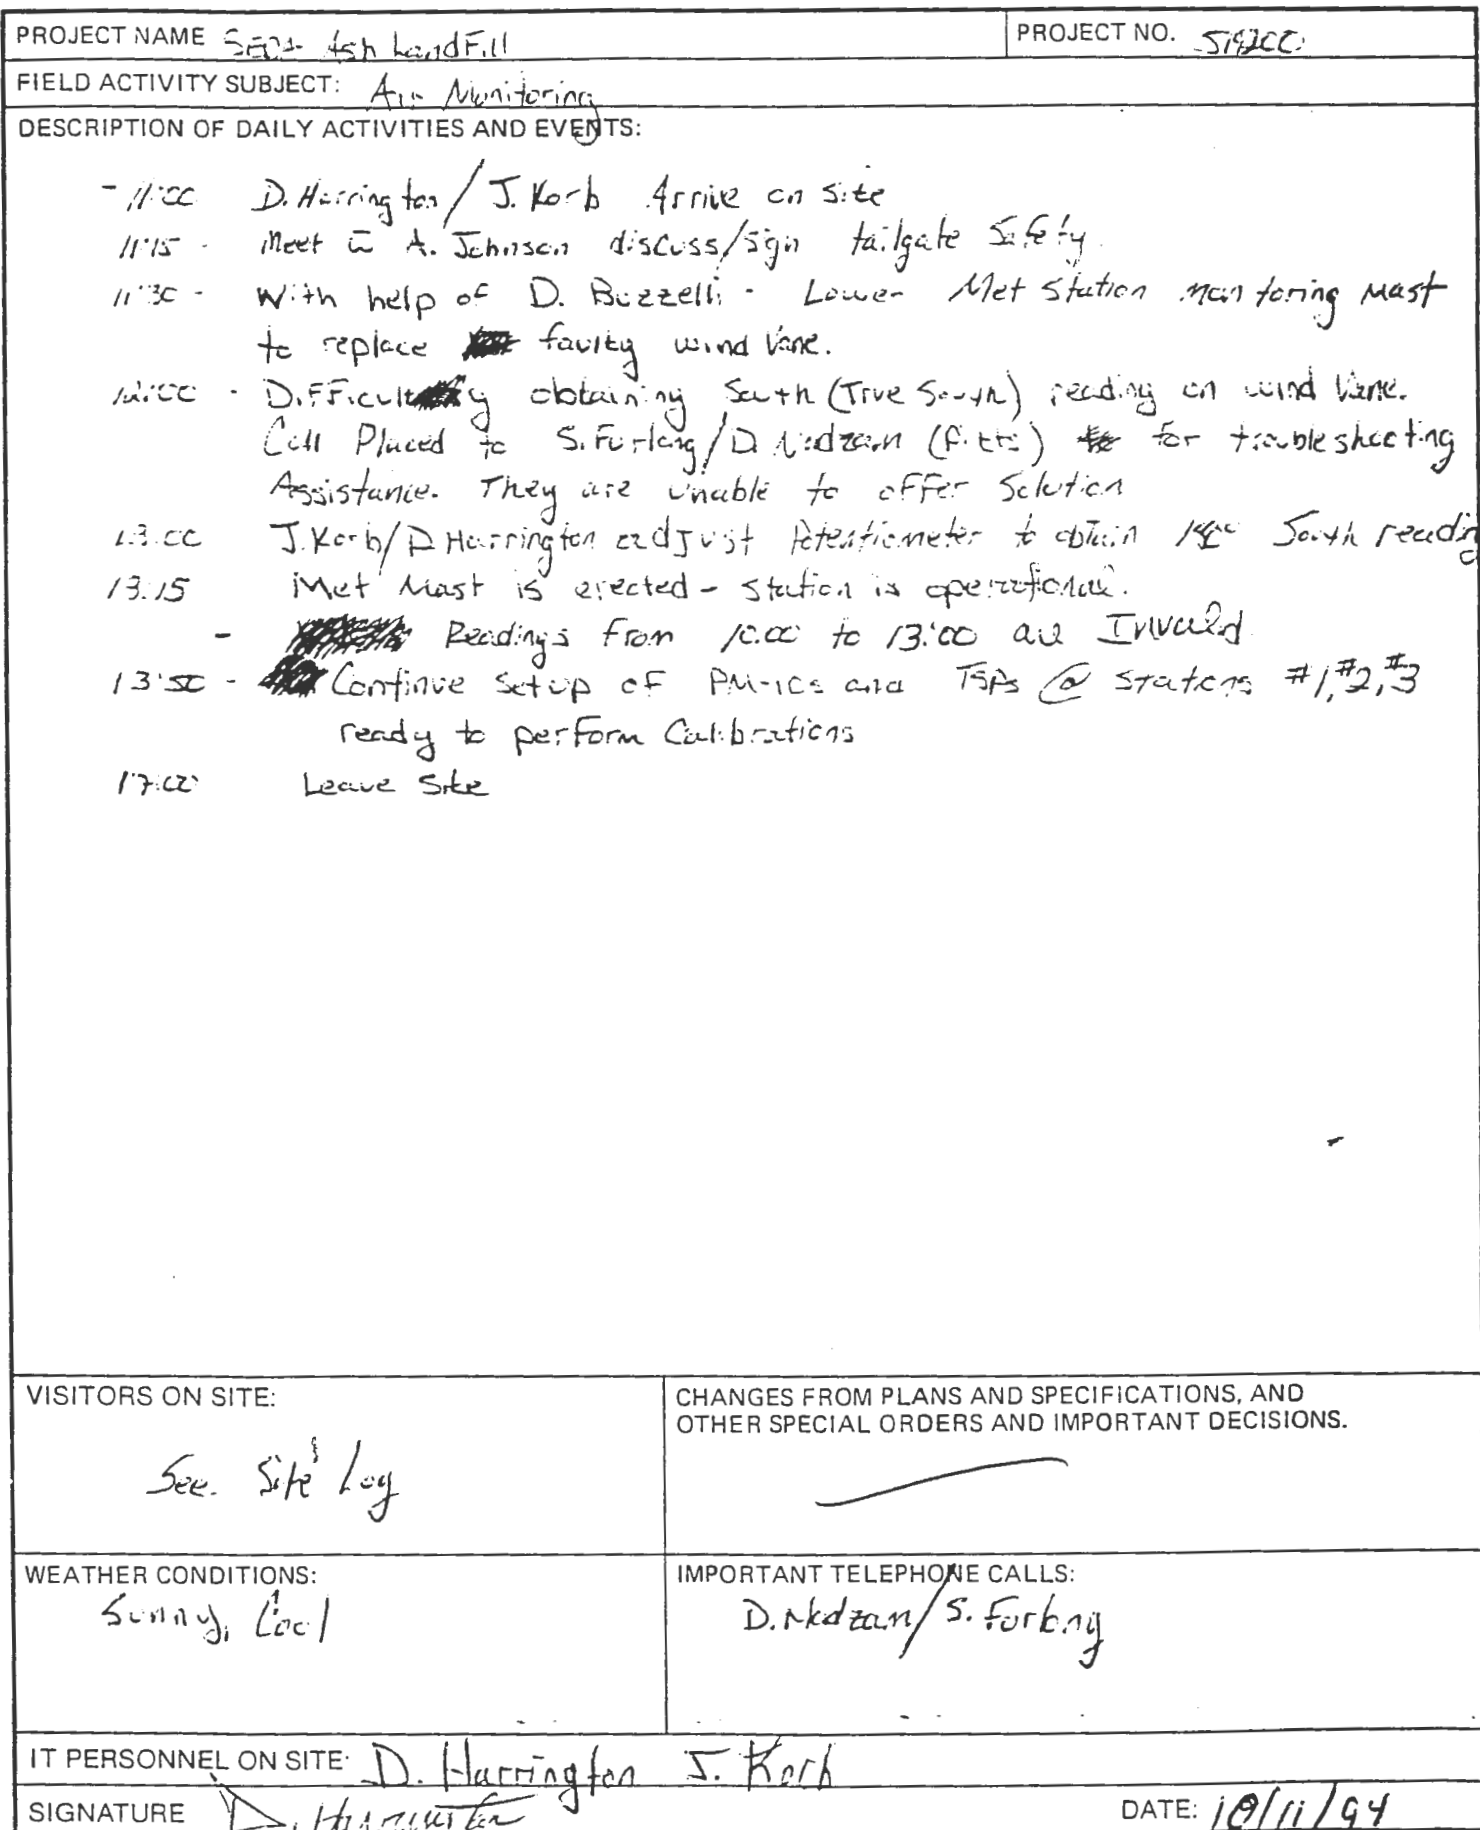 PROJECT NAME SEDA Ash LandFill PROJECT NO. 519200
FIELD ACTIVITY SUBJECT: Air Monitoring
DESCRIPTION OF DAILY ACTIVITIES AND EVENTS:
- 11:00 D. Harrington / J. Korb Arrive on site
11:15 - Meet w A. Johnson discuss/sign tailgate Safety.
11:30 - With help of D. Buzzelli - Lower Met Station monitoring Mast
to replace faulty wind Vane.
12:00 - Difficulty obtaining South (True South) reading on wind Vane.
Call Placed to S. Furlong / D. Nedzam (Pitts) for troubleshooting
Assistance. They are unable to offer Solution
13:00 J. Korb / D Harrington adjust Potentiometer to obtain 180° South reading
13:15 Met Mast is erected - Station is operational.
- Readings from 10:00 to 13:00 are Invalid
13:50 - Continue Setup of PM-10s and TSPs @ stations #1, #2, #3
ready to perform Calibrations
17:00 Leave Site
VISITORS ON SITE:
See Site Log
CHANGES FROM PLANS AND SPECIFICATIONS, AND
OTHER SPECIAL ORDERS AND IMPORTANT DECISIONS.
WEATHER CONDITIONS:
Sunny, Cool
IMPORTANT TELEPHONE CALLS:
D. Nedzam / S. Furlong
IT PERSONNEL ON SITE: D. Harrington J. Korb
SIGNATURE D. Harrington DATE: 10/11/94